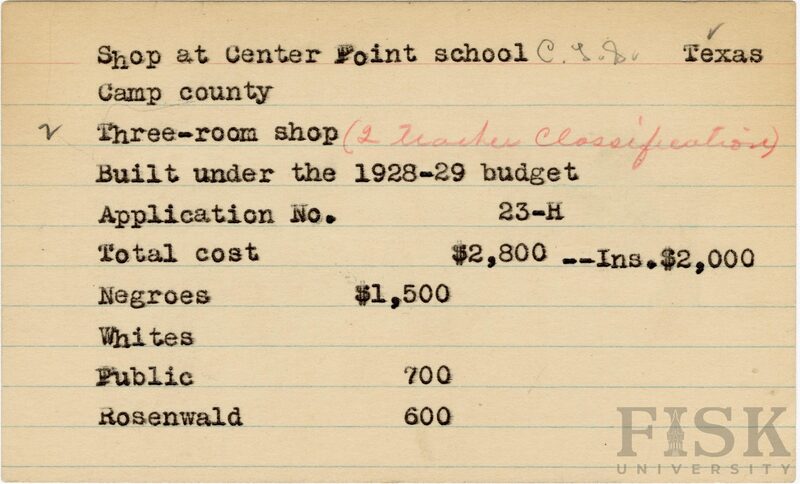 Shop at Center Point school C.T.S. Texas
Camp county
Three-room shop (2 Teacher Classification)
Built under the 1928-29 budget
Application No. 23-H
Total cost $2,800 --Ins.$2,000
Negroes $1,500
Whites
Public 700
Rosenwald 600
FISK
UNIVERSITY